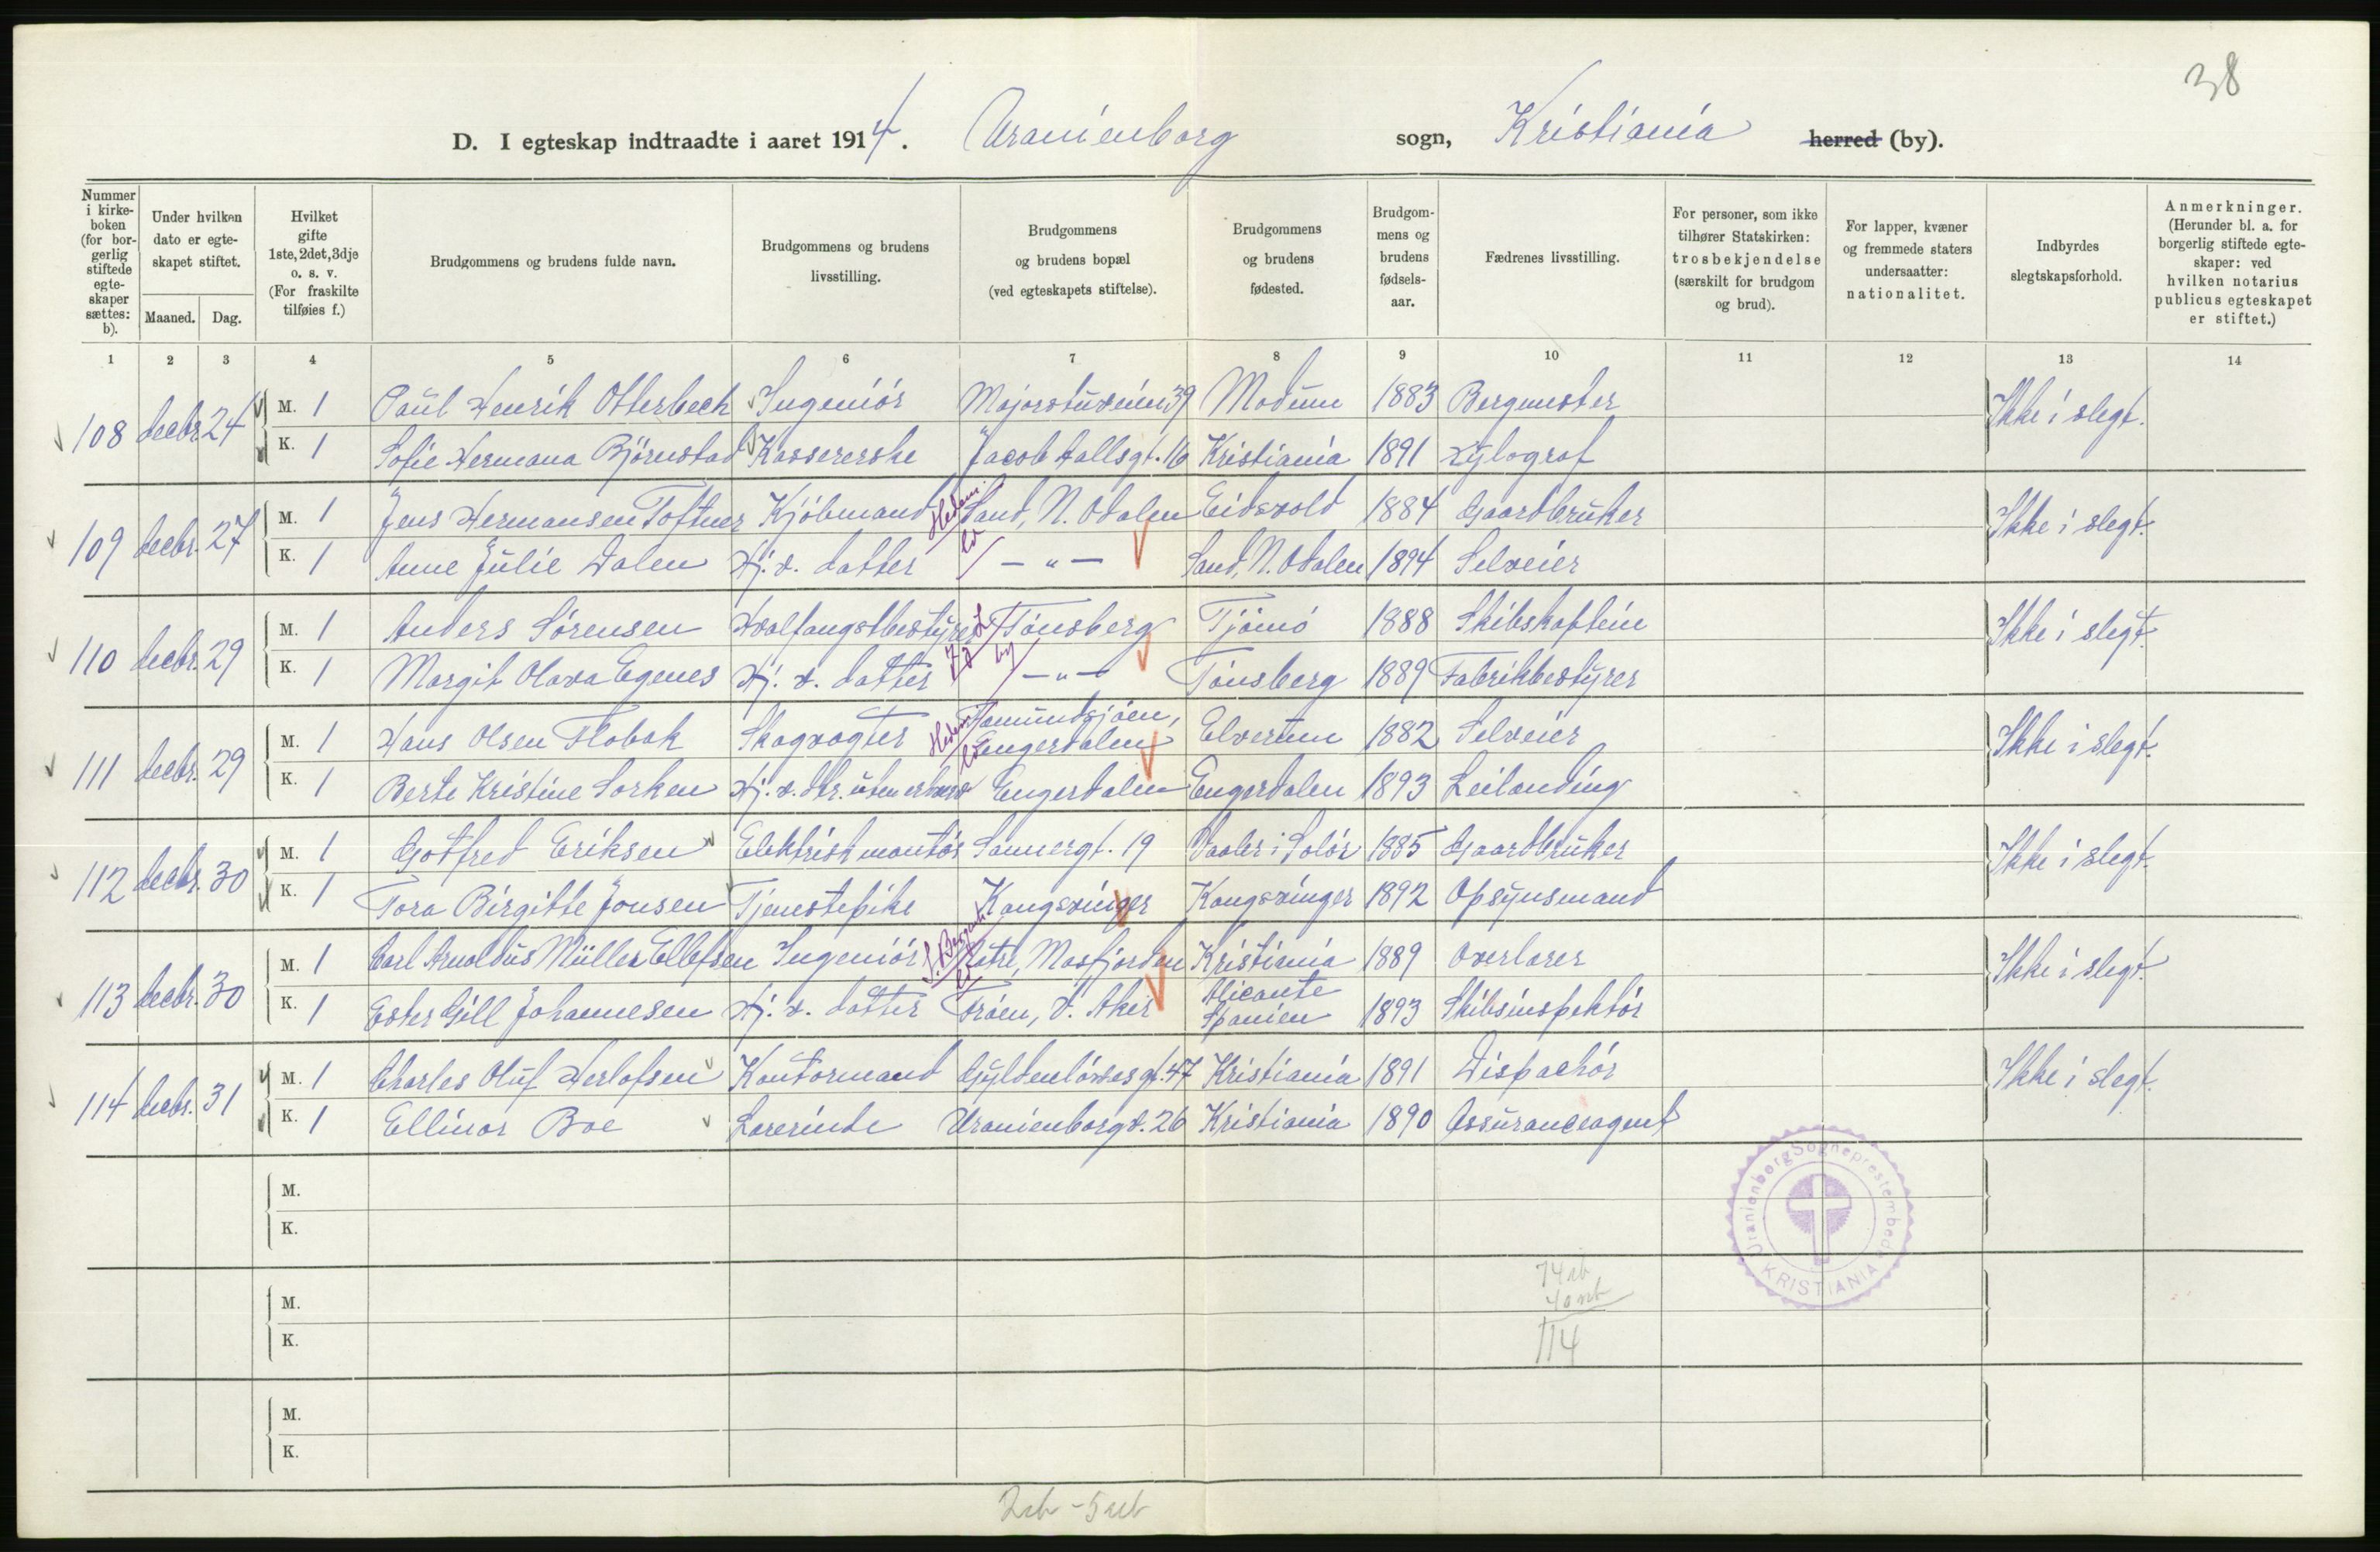 38
D. I egteskap indtraadte i aaret 1914. Uranienborg sogn, Kristiania herred (by).
Nummer i kirkeboken (for borgerlig stiftede egteskaper sættes: b).
Under hvilken dato er egteskapet stiftet.
Maaned. Dag.
Hvilket gifte 1ste, 2det, 3dje o. s. v. (For fraskilte tilføies f.)
Brudgommens og brudens fulde navn.
Brudgommens og brudens livsstilling.
Brudgommens og brudens bopæl (ved egteskapets stiftelse).
Brudgommens og brudens fødested.
Brudgommens og brudens fødselsaar.
Fædrenes livsstilling.
For personer, som ikke tilhører Statskirken: trosbekjendelse (særskilt for brudgom og brud).
For lapper, kvæner og fremmede staters undersaatter: nationalitet.
Indbyrdes slegtskapsforhold.
Anmerkninger. (Herunder bl. a. for borgerlig stiftede egteskaper: ved hvilken notarius publicus egteskapet er stiftet.)
1 2 3 4 5 6 7 8 9 10 11 12 13 14
108 decbr 24 M. 1 Paul Henrik Otterbech Ingeniör Majorstuveien 39 Modum 1883 Bergmester Ikke i slegt.
K. 1 Sofie Hermana Björnstad Kassererske Jacob Aallsgt. 16 Kristiania 1891 Xylograf
109 decbr. 27 M. 1 Jens Hermansen Toftner Kjöbmand Hedem. ld Sand, N. Odalen Eidsvold 1884 Gaardbruker Ikke i slegt.
K. 1 Anne Julie Dalen Hj. v. datter — " — Sand, N. Odalen 1894 Selveier
110 decbr. 29 M. 1 Anders Sörensen Hvalfangstbestyrer Tönsberg by Tjömö 1888 Skibskaptein Ikke i slegt.
K. 1 Margit Olava Egenes Hj. v. datter — " — Tönsberg 1889 Fabrikbestyrer
111 decbr. 29 M. 1 Hans Olsen Flobak Skogvogter Hedem ld Femundsjöen, Engerdalen Elverum 1882 Selveier Ikke i slegt.
K. 1 Berte Kristine Sorken Hj. v. dtr. uten erhverv Engerdalen Engerdalen 1893 Leilænding
112 decbr. 30 M. 1 Gotfred Eriksen Elektrisk montör Sannergt. 19 Vaaler i Solör 1885 Gaardbruker Ikke i slegt.
K. 1 Tora Birgitte Jonsen Tjenestepike Kongsvinger Kongsvinger 1892 Opsynsmand
113 decbr. 30 M. 1 Carl Arnoldus Müller Ellefsen Ingeniör S. Bergenh. ld Matre, Masfjorden Kristiania 1889 Overlærer Ikke i slegt.
K. 1 Ester Gill Johannesen Hj. v. datter Fröen, V. Aker Alicante Spanien 1893 Skibsinspektör
114 decbr. 31 M. 1 Charles Oluf Herlofsen Kontormand Gyldenlövesgt. 47 Kristiania 1891 Dispachör Ikke i slegt.
K. 1 Ellinor Boe Lærerinde Uranienborgv. 26 Kristiania 1890 Assuranceagent
M.
K.
M.
K.
M.
K.
Uranienborg Sogneprestembede KRISTIANIA
74 sb
40 nb
114
2 sb - 5 ub